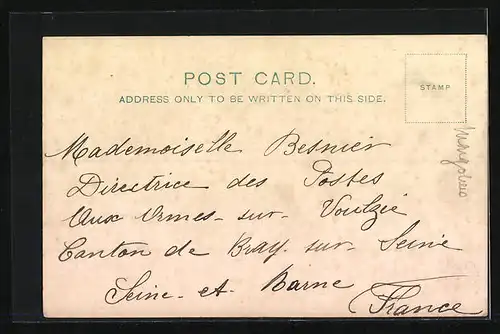 POST CARD.
ADDRESS ONLY TO BE WRITTEN ON THIS SIDE.
STAMP
Mademoiselle Besnier
Directrice des Postes
Aux Ormes-sur-Voulzie
Canton de Bray-sur-Seine
Seine-et-Barne
France